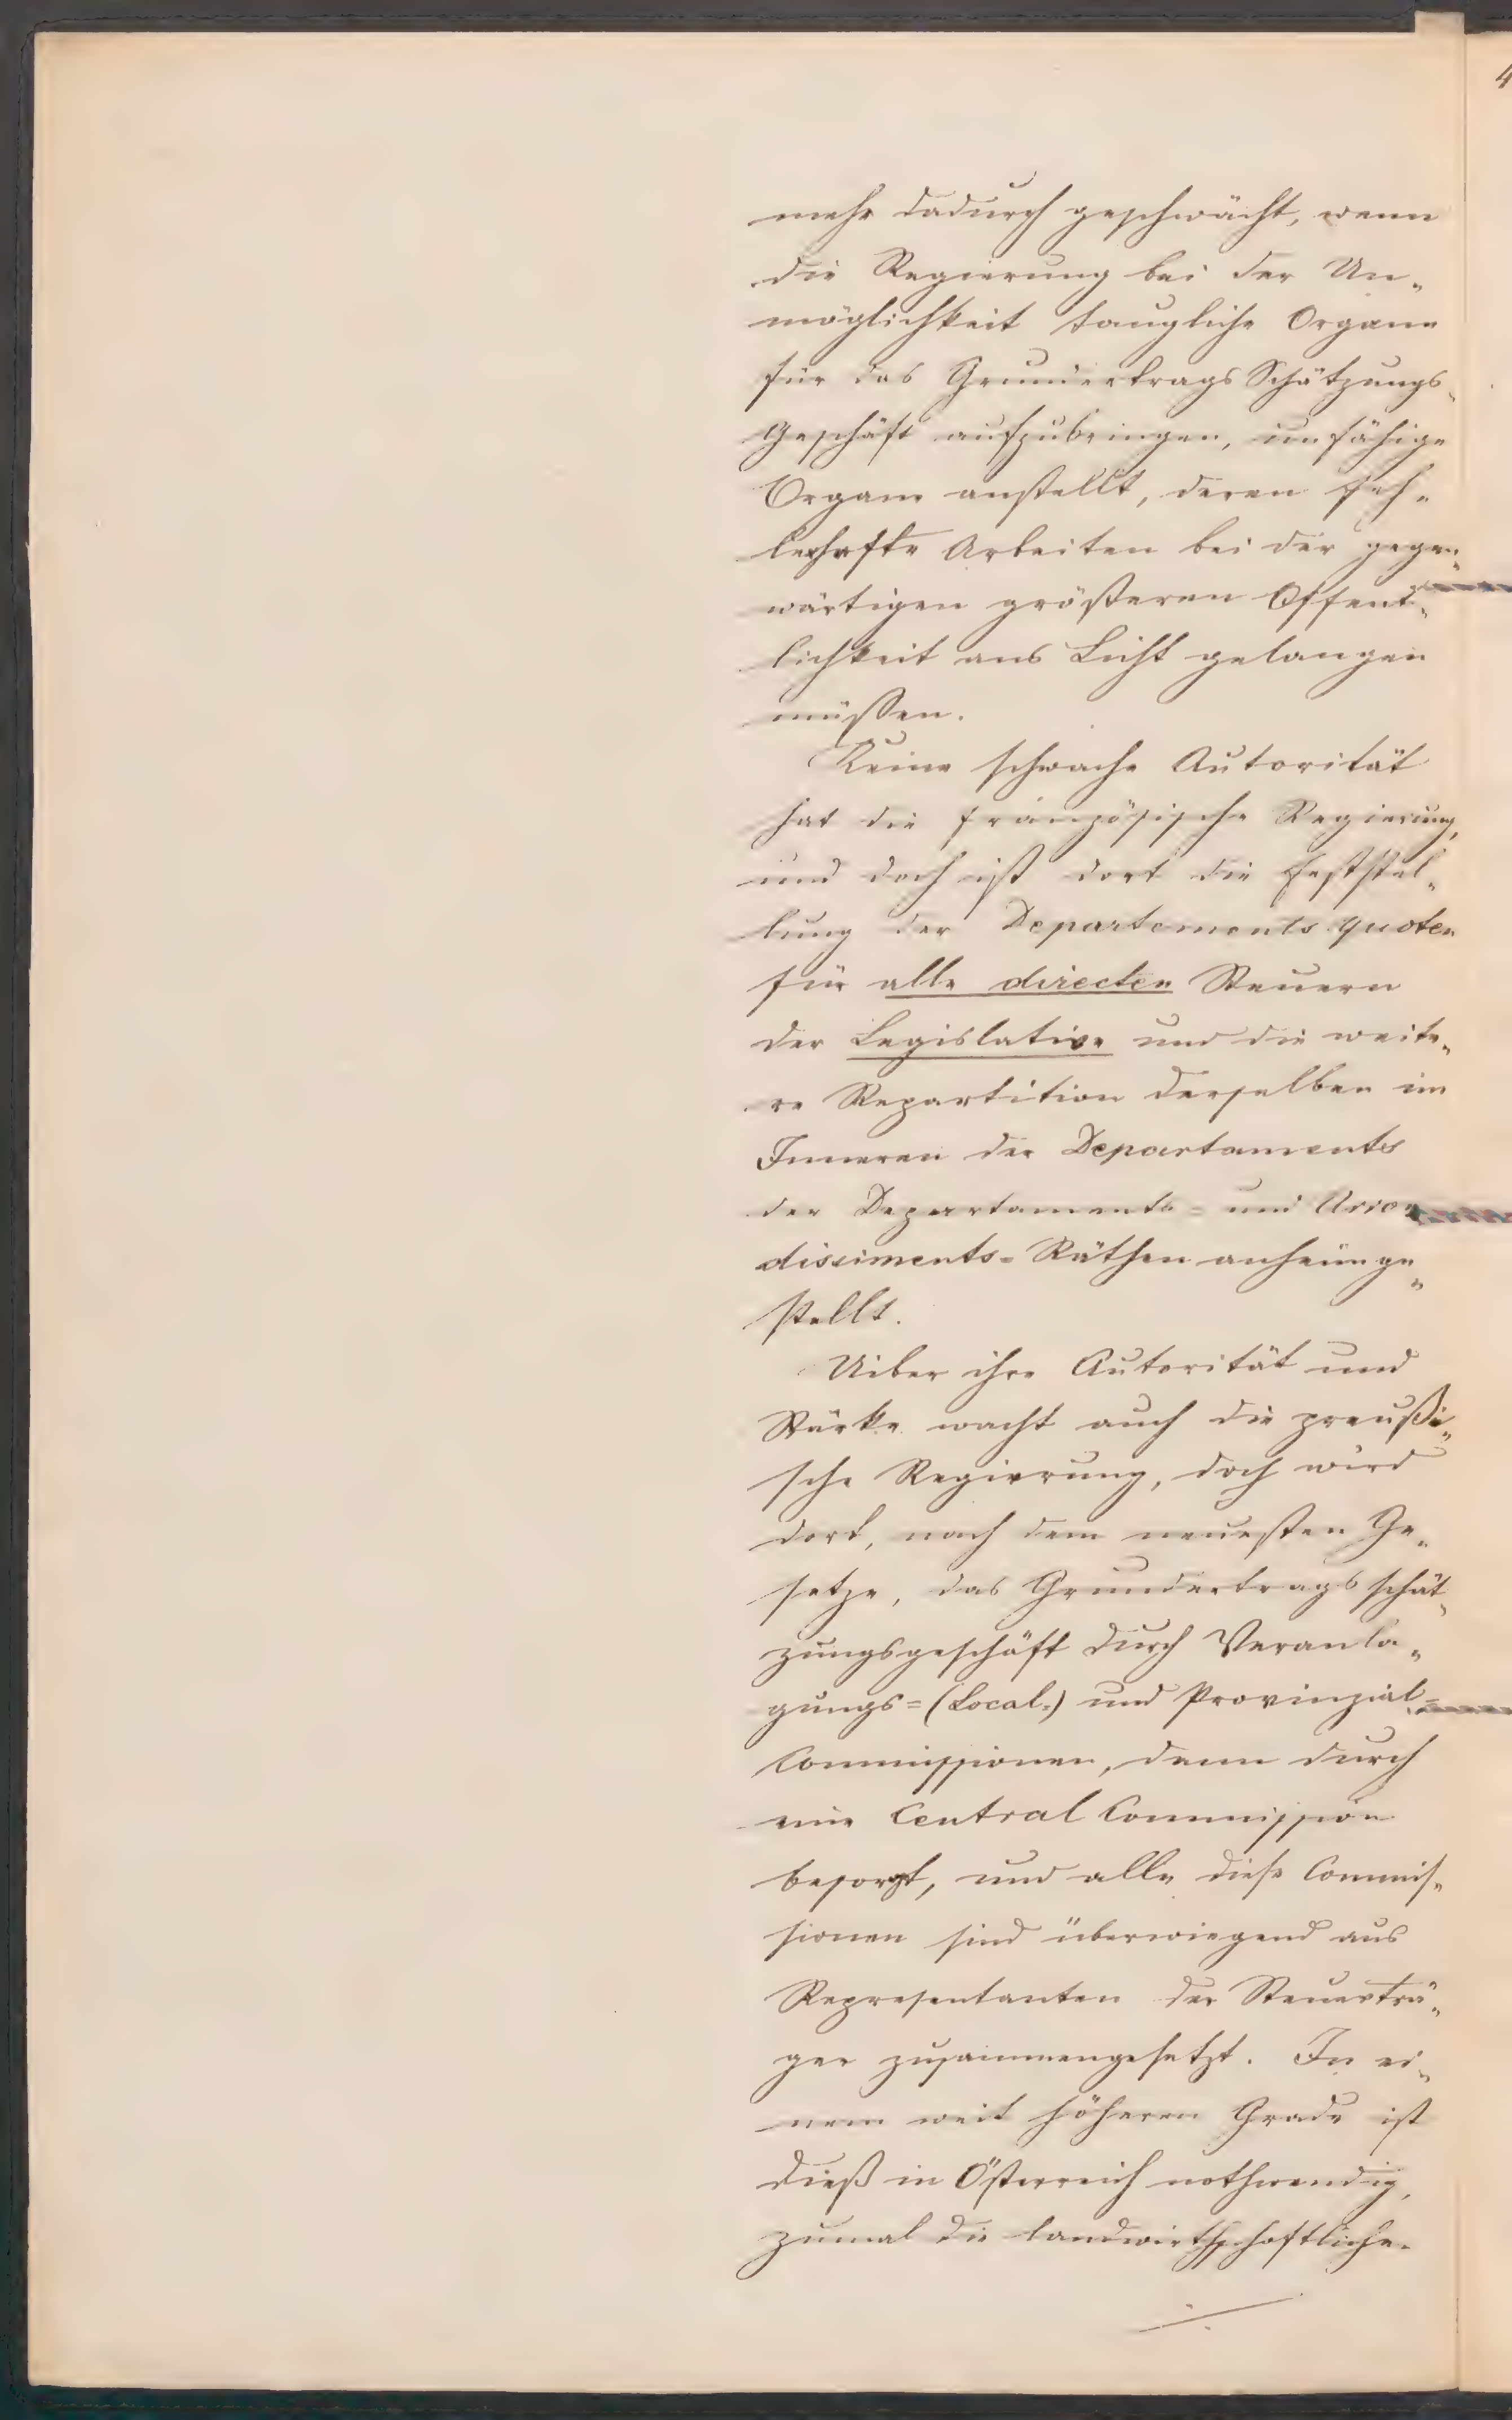 mehr dadurch geschwächt, wenn
die Regierung bei der Un„
möglichkeit taugliche Organe
für das Grundertrags Schätzungs„
Geschäft aufzubringen, unfähige
Organe anstellt, deren feh„
lerhafte Arbeiten bei der gegen„
wärtigen größeren Offent„
lichkeit ans Licht gelangen
müssen.
Keine schwache Autorität
hat die französische Regierung,
und doch ist dort die Feststel„
lung der Departements quoten
für alle directen Steuern
der Legislative und die weite„
re Repartition derselben im
Inneren der Departaments
der Departaments= und Arron
dissiments= Räthen anheimge„
stellt.
Uiber ihre Autorität und
Stärke wacht auch die preußi„
sche Regierung, doch wird
dort, nach dem neuesten Ge„
setze, das Grundertrags schät„
zungsgeschäft durch Veranla„
gungs=(Local=) und Provinzial=
Commissionen, dann durch
eine Central Commission
besorgt, und alle diese Commis„
sionen sind überwiegend aus
Representanten der Steuerträ„
ger zusammengesetzt. In ei„
nem weit höheren Grade ist
dieß in Österreich nothwendig,
zumal die landwirthschaftliche
4